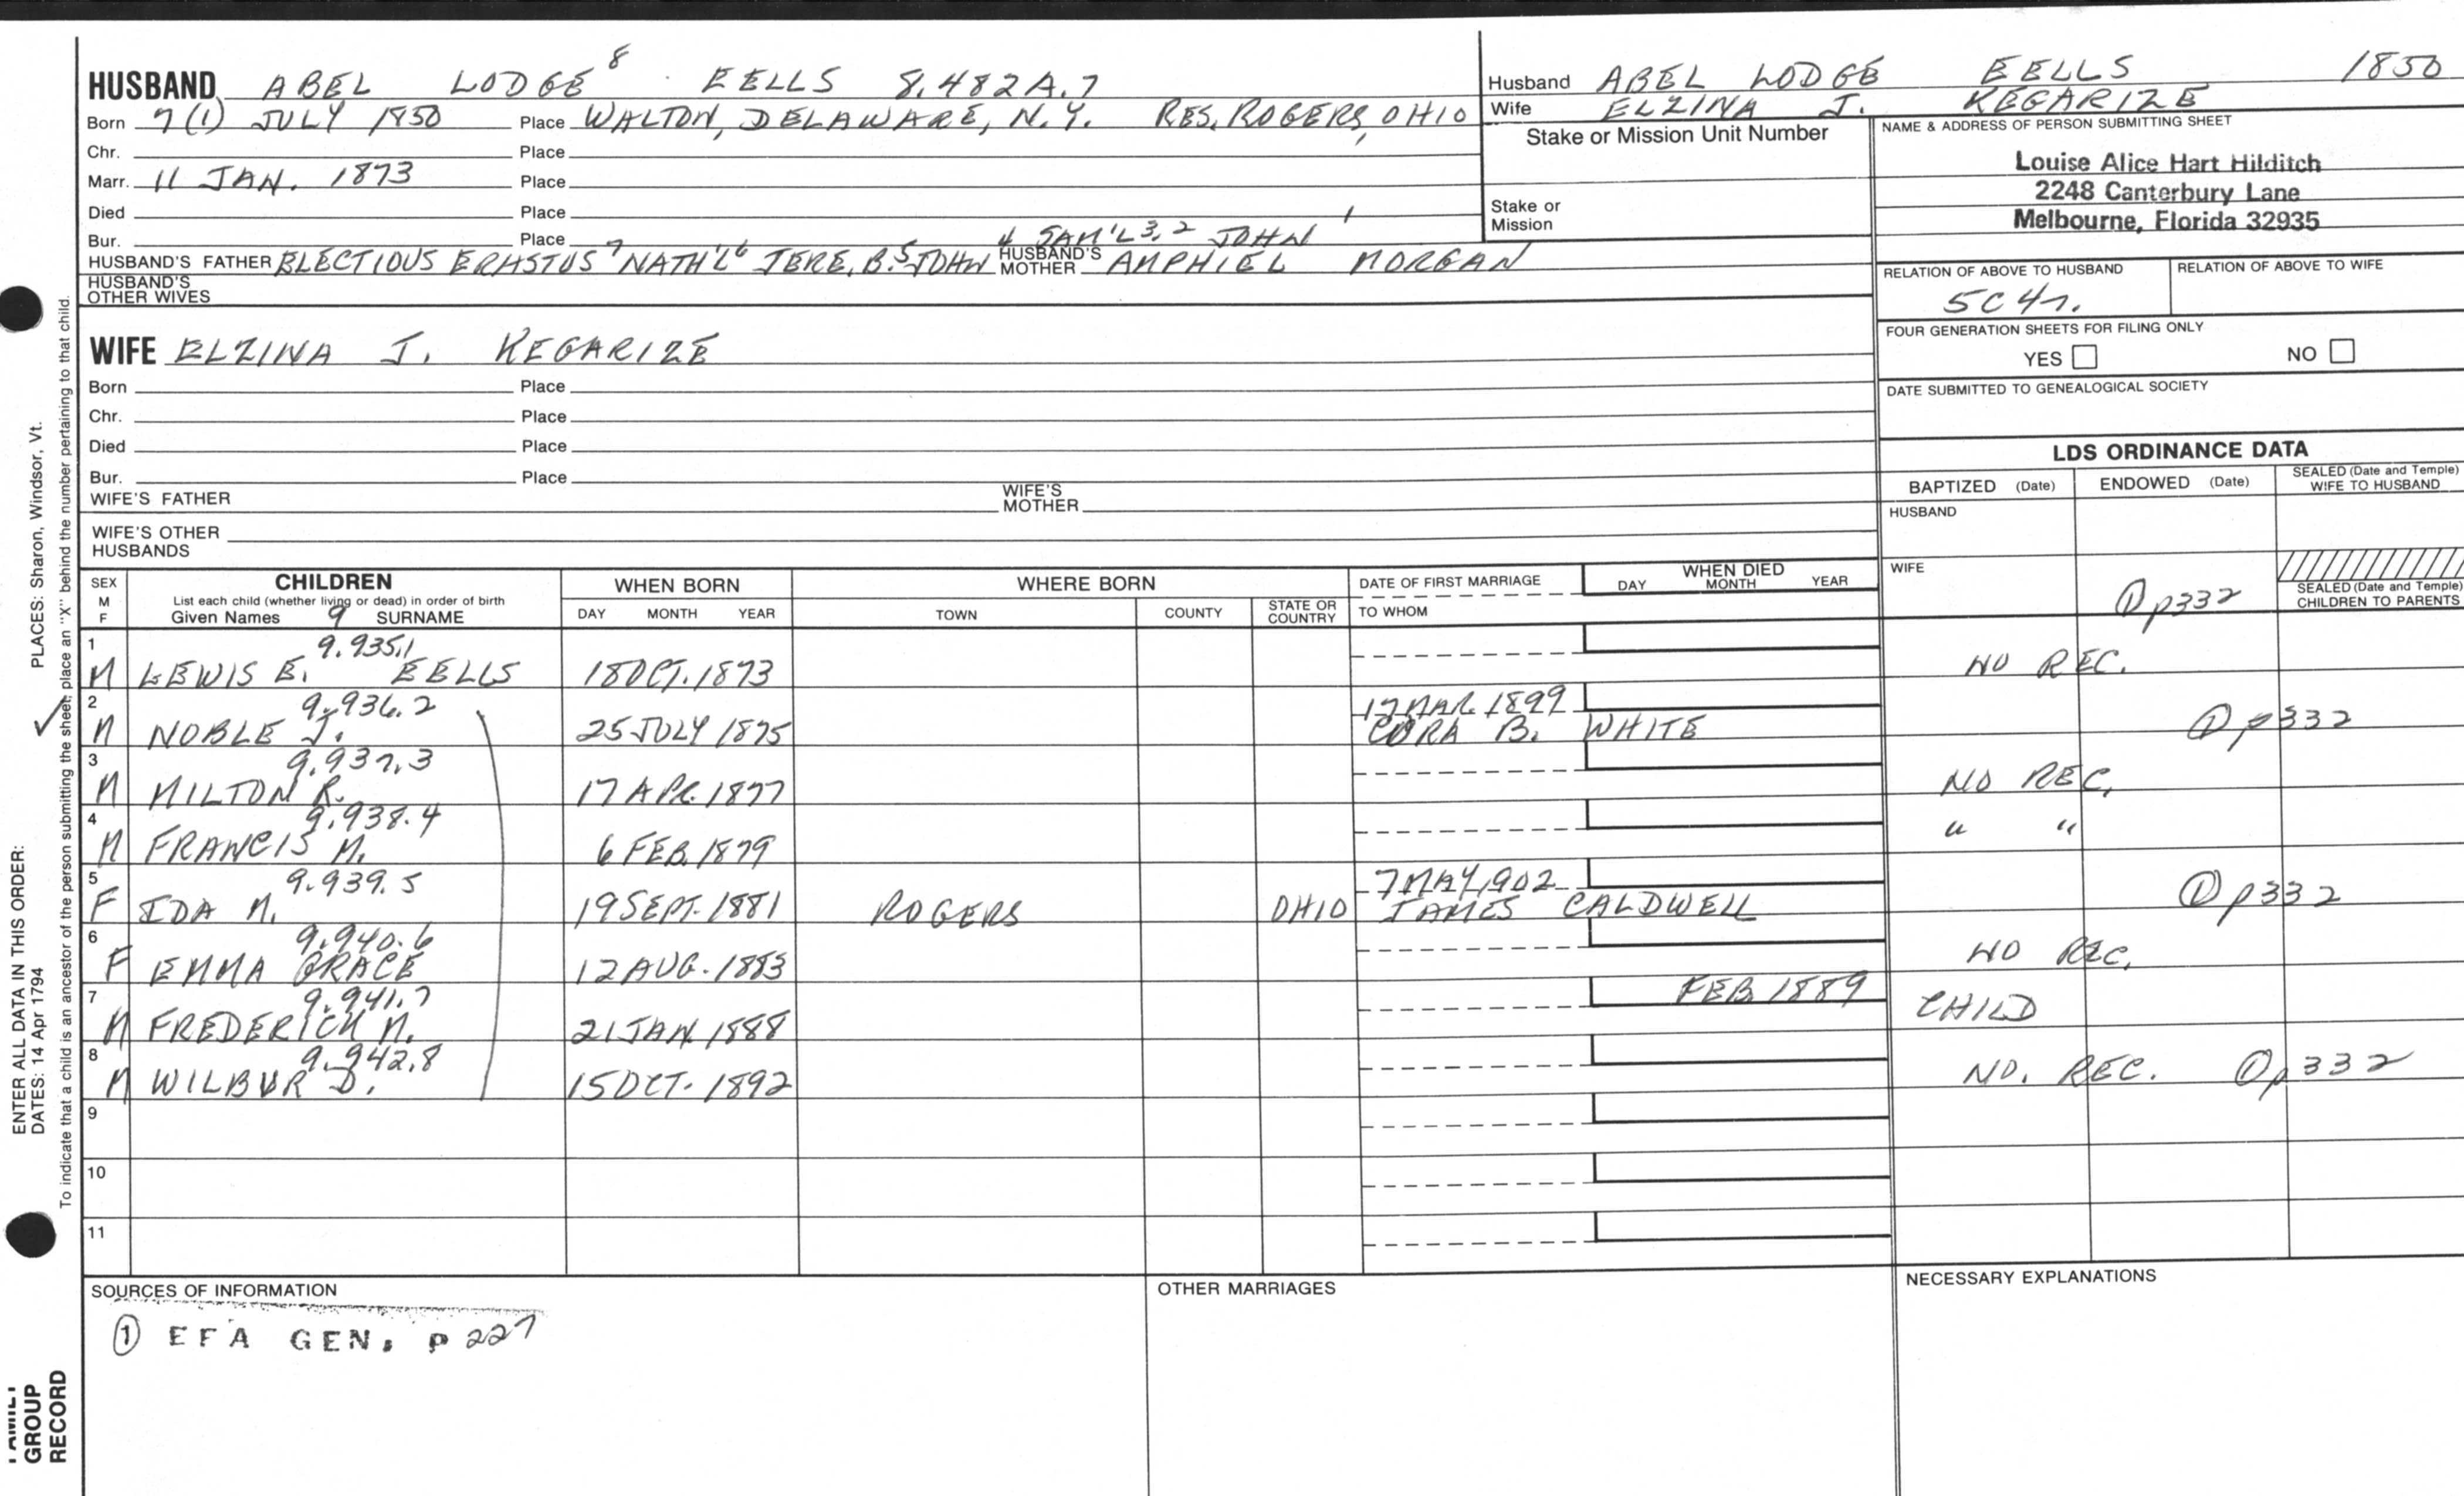 HUSBAND ABEL LODGE 8 EELLS 8.482A.7
Born 7(1) JULY 1850 Place WALTON, DELAWARE, N.Y. RES. ROGERS, OHIO
Chr. Place
Marr. 11 JAN. 1873 Place
Died Place
Bur. Place
4 SAM'L 3,2 JOHN 1
HUSBAND'S FATHER ELECTIOUS ERASTUS 7 NATH'L 6 JERE. B. 5 JOHN HUSBAND'S MOTHER AMPHIEL MORGAN
HUSBAND'S OTHER WIVES
WIFE ELZINA J. KEGARIZE
Born Place
Chr. Place
Died Place
Bur. Place
WIFE'S FATHER WIFE'S MOTHER
WIFE'S OTHER HUSBANDS
Husband ABEL LODGE EELLS 1850
Wife ELZINA J. KEGARIZE
Stake or Mission Unit Number
Stake or Mission
NAME & ADDRESS OF PERSON SUBMITTING SHEET
Louise Alice Hart Hilditch
2248 Canterbury Lane
Melbourne, Florida 32935
RELATION OF ABOVE TO HUSBAND RELATION OF ABOVE TO WIFE
5C4r.
FOUR GENERATION SHEETS FOR FILING ONLY
YES NO
DATE SUBMITTED TO GENEALOGICAL SOCIETY
LDS ORDINANCE DATA
BAPTIZED (Date) ENDOWED (Date) SEALED (Date and Temple) WIFE TO HUSBAND
HUSBAND
WIFE
① p332
SEALED (Date and Temple) CHILDREN TO PARENTS
SEX M F
CHILDREN
List each child (whether living or dead) in order of birth
Given Names 9 SURNAME
WHEN BORN
DAY MONTH YEAR
WHERE BORN
TOWN COUNTY STATE OR COUNTRY
DATE OF FIRST MARRIAGE
TO WHOM
WHEN DIED
DAY MONTH YEAR
1 9.935.1
M LEWIS E. EELLS 18 OCT. 1873 NO REC.
2 9.936.2 17 MAR. 1899
M NOBLE J. 25 JULY 1875 CORA B. WHITE ① p332
3 9.937.3
M MILTON R. 17 APR. 1877 NO REC.
4 9.938.4
M FRANCIS M. 6 FEB. 1879 " "
5 9.939.5 7 MAY 1902
F IDA M. 19 SEPT. 1881 ROGERS OHIO JAMES CALDWELL ① p332
6 9.940.6
F EMMA GRACE 12 AUG. 1883 NO REC.
7 9.941.7 FEB. 1889
M FREDERICK M. 21 JAN. 1888 CHILD
8 9.942.8
M WILBUR D. 15 OCT. 1892 NO. REC. ① p332
9
10
11
SOURCES OF INFORMATION
① EFA GEN. p 227
OTHER MARRIAGES
NECESSARY EXPLANATIONS
PLACES: Sharon, Windsor, Vt.
ENTER ALL DATA IN THIS ORDER:
DATES: 14 Apr 1794
To indicate that a child is an ancestor of the person submitting the sheet, place an "X" behind the number pertaining to that child.
FAMILY
GROUP
RECORD